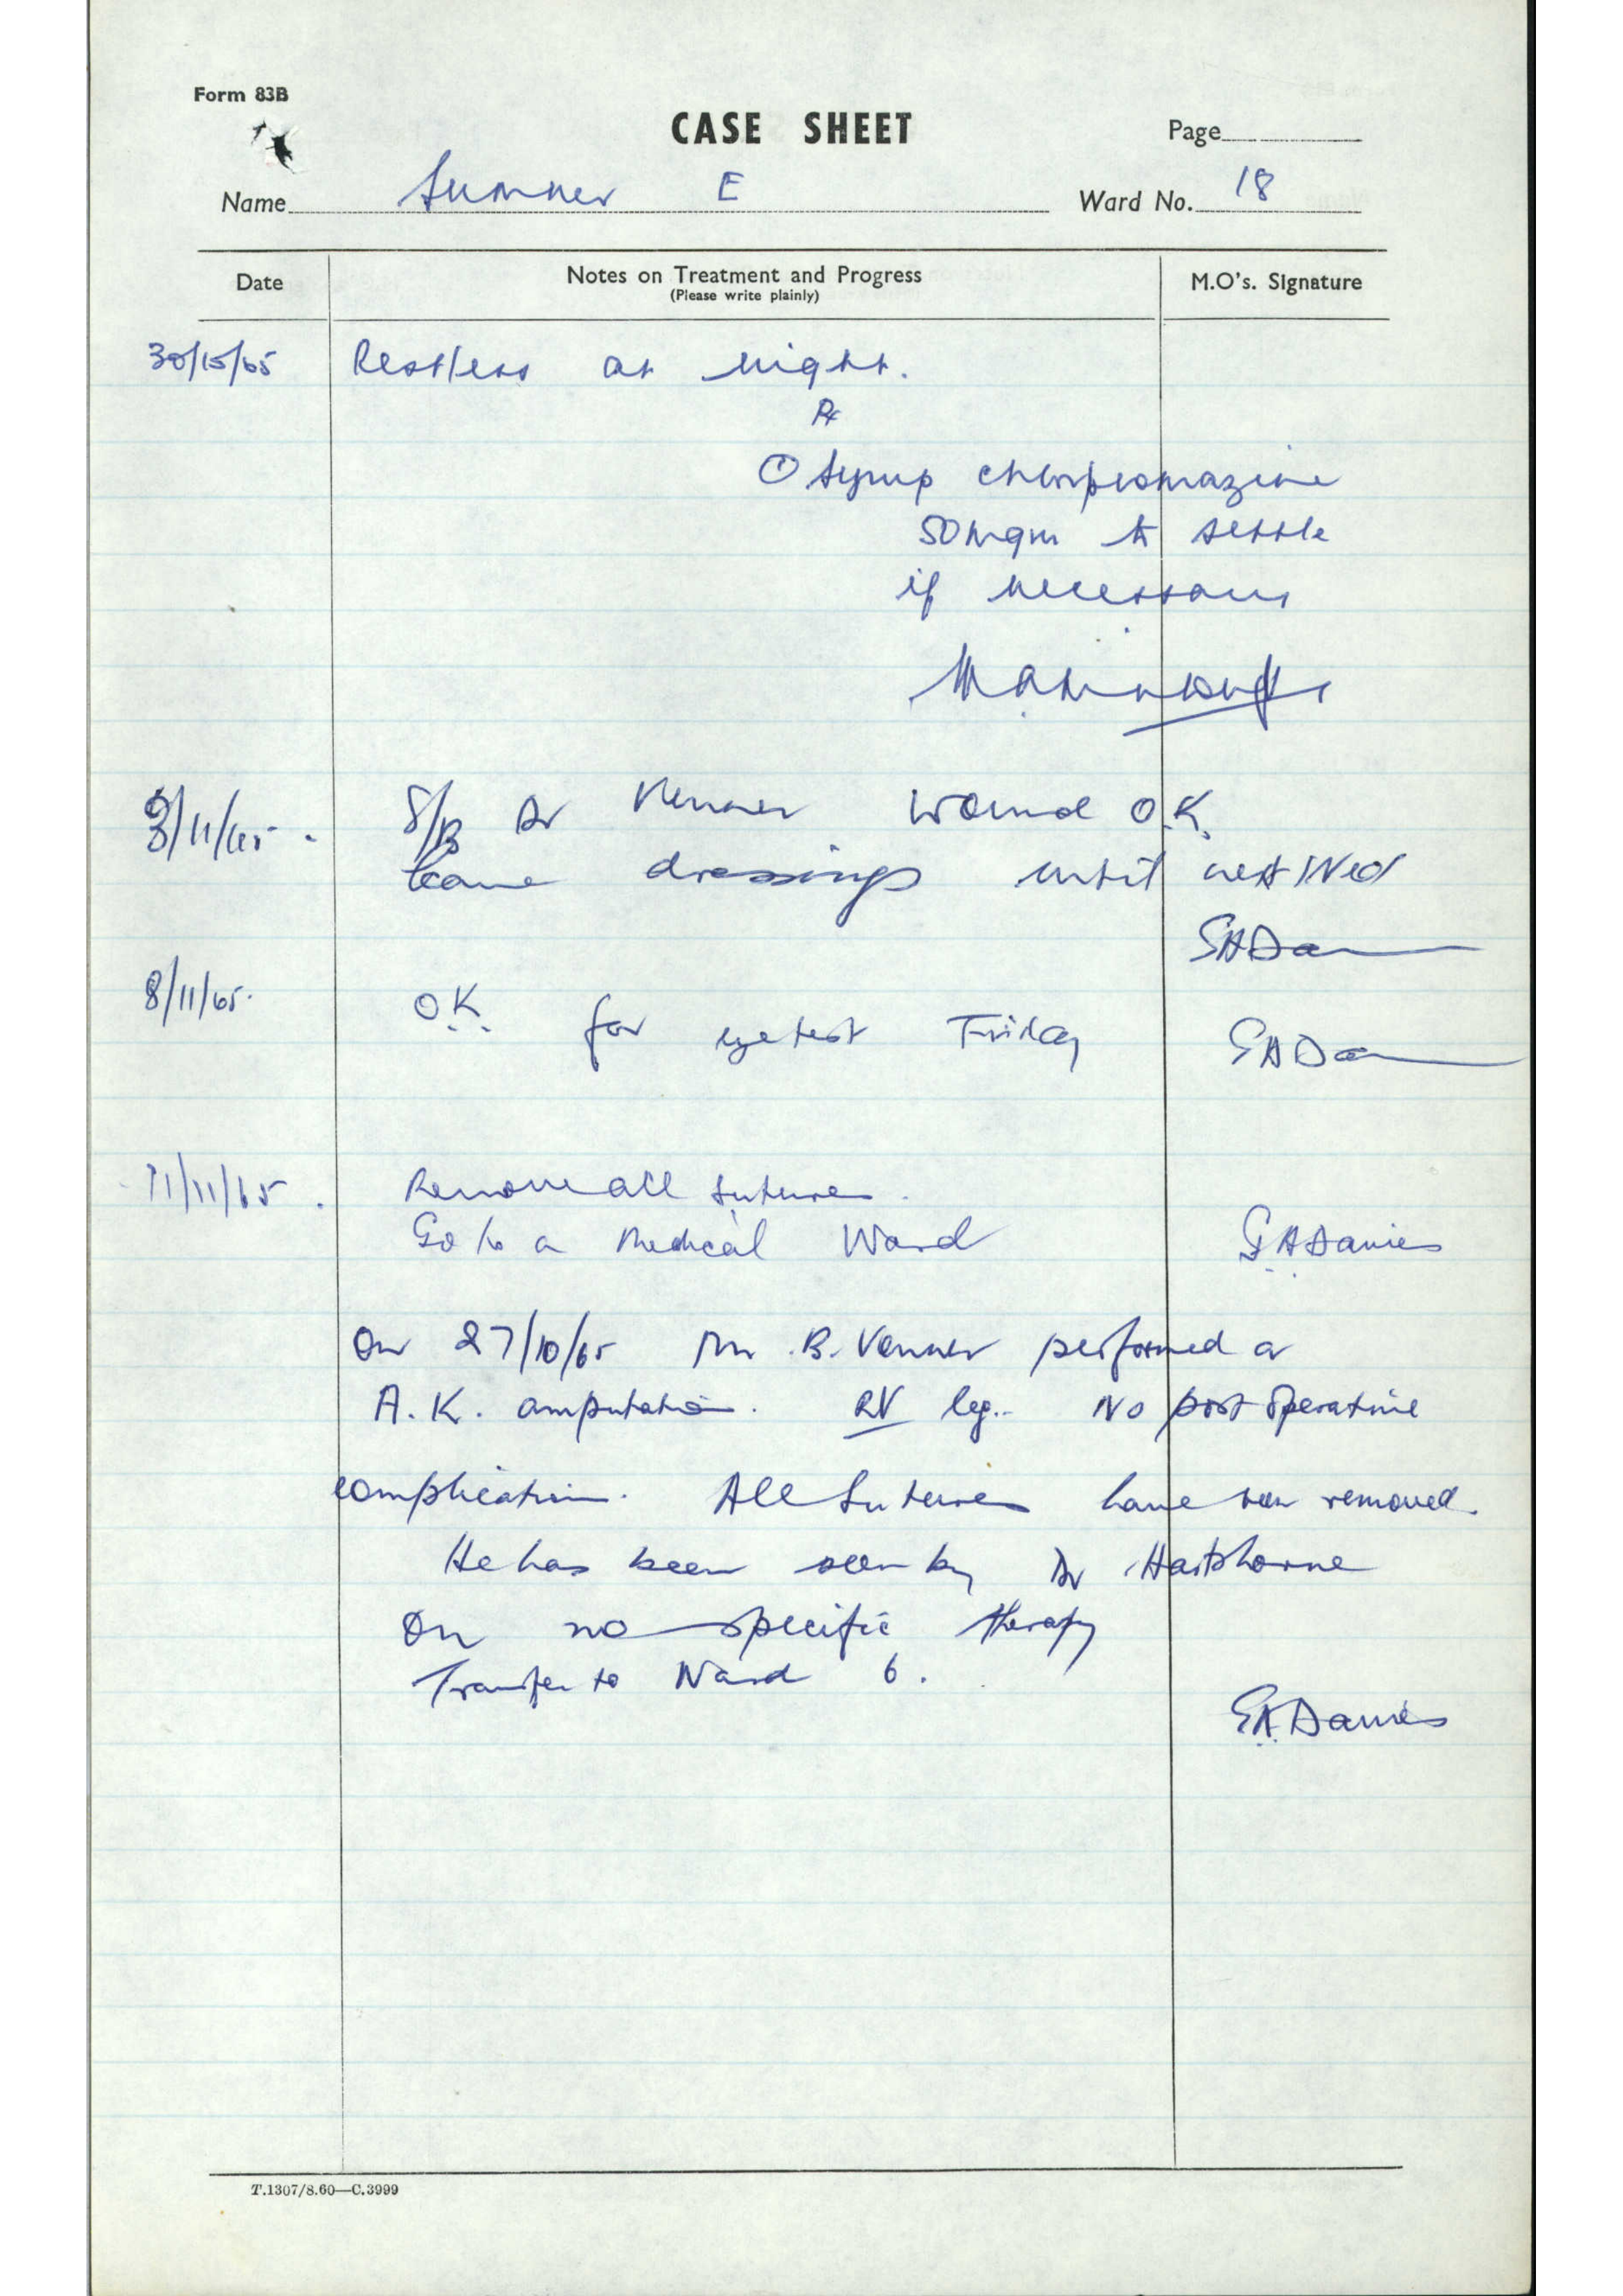 Form 83B
CASE SHEET
Page
Name Sumner E Ward No. 18
Date Notes on Treatment and Progress M.O's. Signature
(Please write plainly)
30/10/65 Restless at night.
Rx
① Syrup chlorpromazine
50 mgm to settle
if necessary
3/11/65. S/B Dr Venner Wound O.K.
Leave dressings until next Wed
8/11/65. O.K. for eye test Friday
11/11/65. Remove all sutures.
Go to a Medical Ward G A Davies
On 27/10/65 Mr. B. Venner performed a
A.K. amputation. leg. No post operative
complication. All sutures have been removed.
He has been seen by Dr Hartshorne
On no specific therapy
Transfer to Ward 6.
G A Davies
T.1307/8.60—C.3999